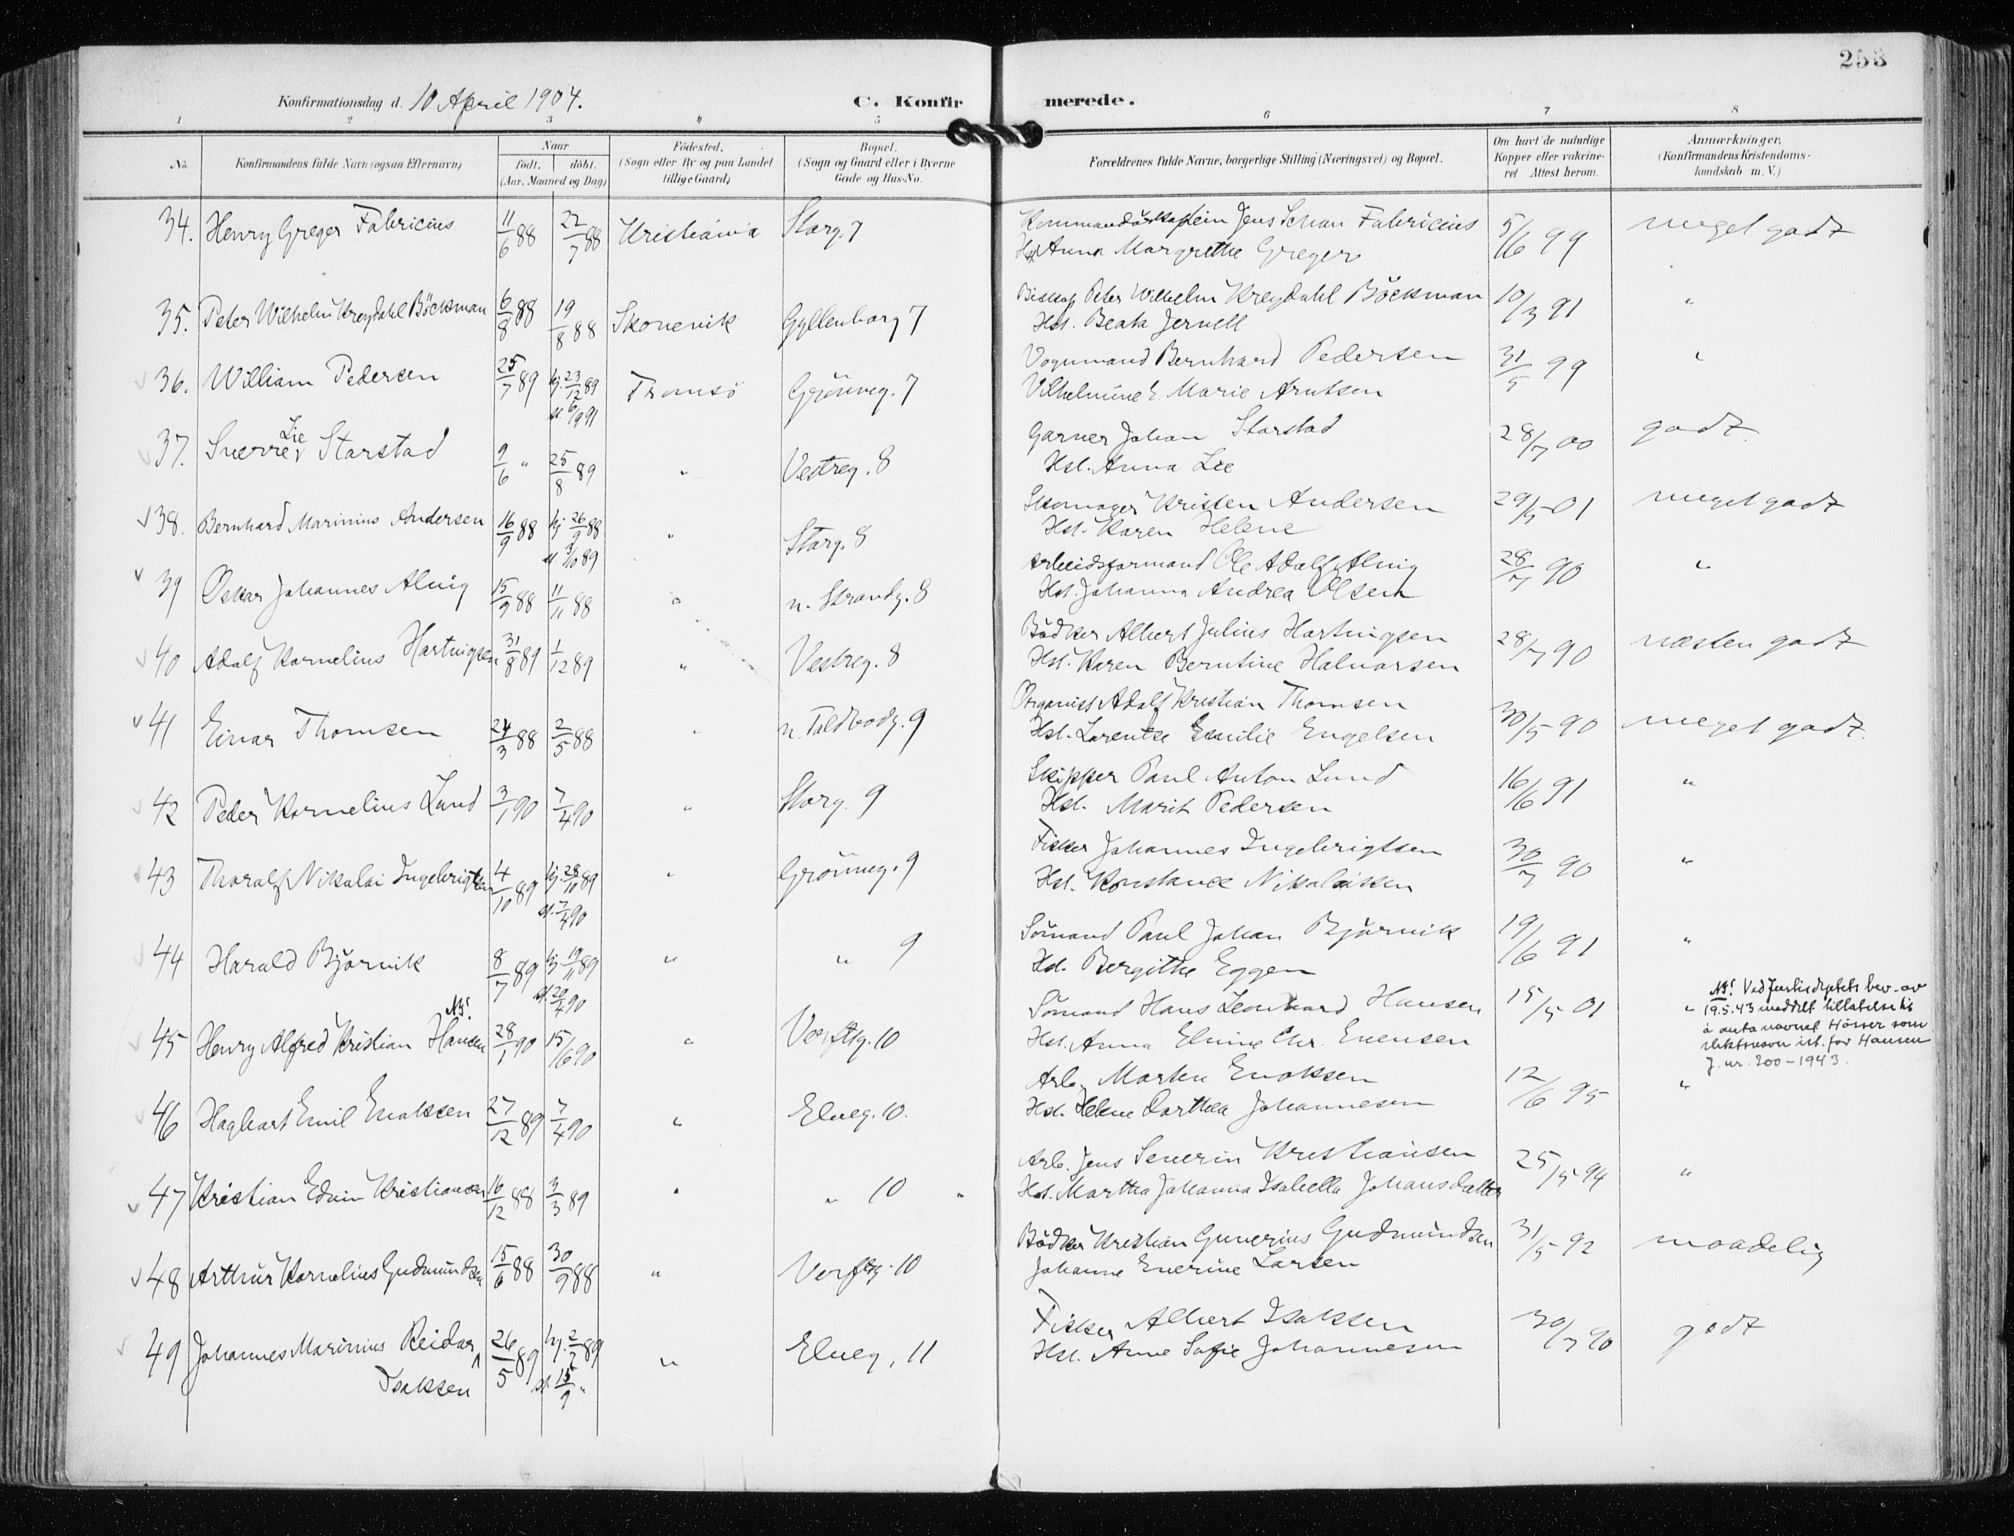 253
Konfirmationsdag d. 10 April 1904. C. Konfirmerede.
1 2 3 4 5 6 7 8
No. Konfirmandens fulde Navn (ogsaa Efternavn) Naar födt. döbt. (Aar, Maaned og Dag) Födested. (Sogn eller By og paa Landet tillige Gaard) Bopæl. (Sogn og Gaard eller i Byerne Gade og Hus-No. Forældrenes fulde Navne, borgerlige Stilling (Næringsvei) og Bopæl. Om havt de naturlige Kopper eller vakcineret Attest herom. Anmærkninger. (Konfirmandens Kristendomskundskab m. V.)
34. Henry Greger Fabricius 11/6 88 22/7 88 Kristiania Storg. 7 Kommandörkaptein Jens Schou Fabricius 5/6 99 meget godt
Hst. Anna Margrethe Greger
35. Peter Wilhelm Kreydahl Böckman 6/8 88 19/8 88 Skonevik Gyllenborg 7 Biskop Peter Wilhelm Kreydahl Böckman 10/3 91 "
Hst. Beata Jervell
36. William Pedersen 25/7 89 hj. 23/12 89 Tromsö Grönneg. 7 Vognmand Bernhard Pedersen 31/5 99 "
st. 6/9 91 Vilhelmine E. Marie Arntsen
37. Sverre Lie Storstad 9/6 " 25/8 89 " Vestreg. 8 Garver Johan Storstad 28/7 00 godt.
Hst. Anna Lie
38. Bernhard Marinius Andersen 16/9 88 hj. 26/9 88 " Storg. 8 Skomager Kristen Andersen 29/5 01 meget godt
st. 3/10 89 Hst. Karen Helene
39 Oskar Johannes Alvig 15/9 88 11/11 88 " n. Strandg. 8 Arbeidsformand Ole Adolf Alvig 28/7 90 "
Hst. Johanna Andrea Olsen
40 Adolf Kornelius Hartvigsen 31/8 89 1/12 89 " Vestreg. 8 Bödker Albert Julius Hartvigsen 28/7 90 næsten godt
Hst. Karen Berntine Halvorsen
41 Einar Thomsen 24/3 88 2/5 88 " n. Toldbodg. 9 Organist Adolf Kristian Thomsen 30/5 90 meget godt.
Hst. Lorentze Emilie Engelsen
42 Peder Kornelius Lund 3/1 90 7/4 90 " Storg. 9 Skipper Paul Anton Lund 16/6 91 "
Hst. Marit Pedersen
43 Thoralf Nikolai Ingebrigtsen 4/10 89 hj. 28/10 89 " Grönneg. 9 Fisker Johannes Ingebrigtsen 30/7 90 "
st. 7/4 90 Hst. Konstance Nikolaisen
44 Harald Björnvik 8/7 89 hj. 19/11 89 " " 9 Sömand Paul Johan Björnvik 19/6 91 "
st. 20/4 90 Hst. Bergithe Eggen
45 Henry Alfred Kristian Hansen NB! 28/1 90 15/6 90 " Verftsg. 10 Sömand Hans Leonhard Hansen 15/5 01 "
Hst. Anna Elvine Chr. Evensen
NB! Ved Justisdeptets bev. av
19.5.43 meddelt tillatelse til
å anta navnet Hösser som
slektsnavn ist. for Hansen
J. nr. 200-1943.
46 Hagbart Emil Enoksen 27/12 89 7/4 90 " Elveg. 10. Arb. Martin Enoksen 12/6 95 "
Hst. Helene Dorthea Johannesen
47 Kristian Edvin Kristiansen 16/12 88 3/3 89 " " 10 " Arb. Jens Severin Kristiansen 25/5 94 "
Hst. Martha Johanna Isabella Johansdatter
48 Arthur Kornelius Gudmundsen 15/6 88 30/9 88 " Verftsg. 10 Bödker Kristian Gunerius Gudmundsen 31/5 92 maadelig
Johanne Enerine Larsen
49 Johannes Marinius Reidar 26/5 89 hj. 2/7 89 " Elveg. 11 Fisker Albert Isaksen 30/7 90 godt
Isaksen st. 15/9 " Hst. Anne Sofie Johannesen